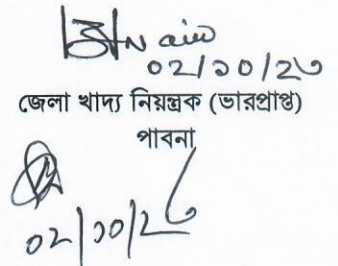 ০২/১০/২৩
জেলা খাদ্য নিয়ন্ত্রক (ভারপ্রাপ্ত)
পাবনা
০২/১০/২৩